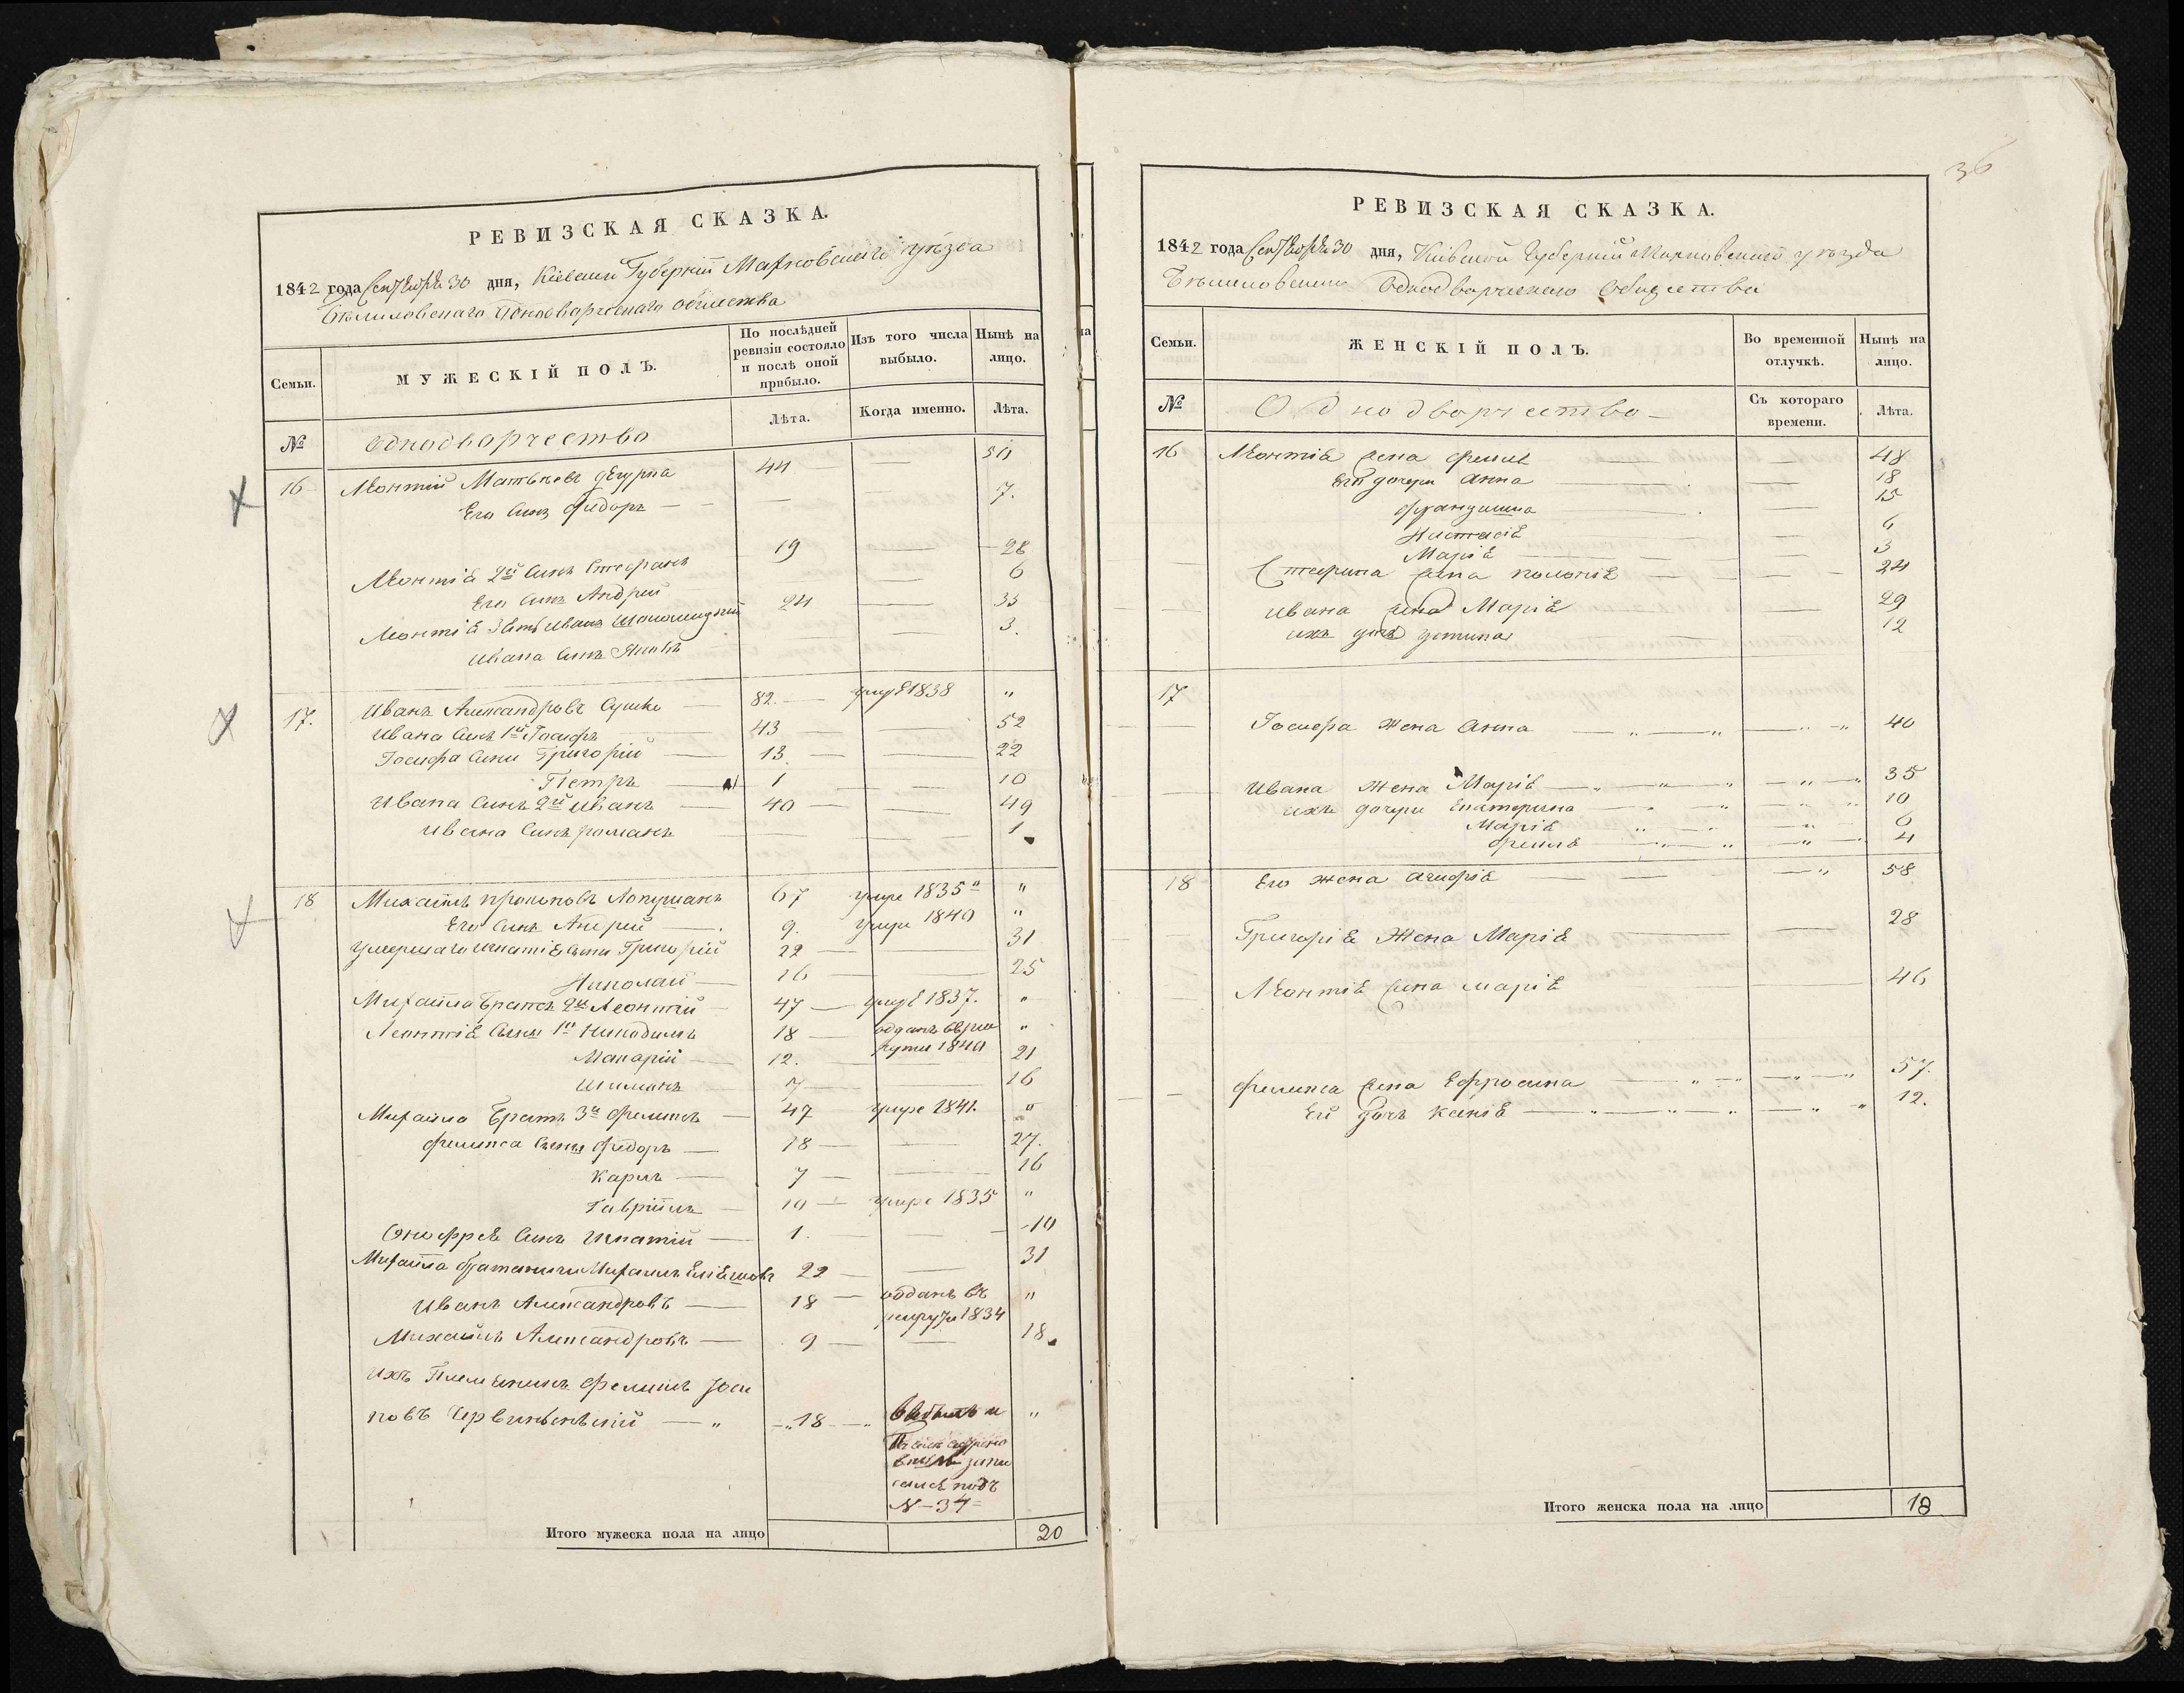 РЕВИЗСКАЯ СКАЗКА.
1842 года Сентября 30 дня, Кіевской Губерніи Махновскаго уѣзда
Бѣлиловскаго Однодворческаго общества
Семьи.
МУЖЕСКІЙ ПОЛЪ.
По послѣдней ревизіи состояло и послѣ оной прибыло.
Изъ того числа выбыло.
Нынѣ на лицо.
№
однодворчество
Лѣта.
Когда именно.
Лѣта.
16 Леонтій Матвѣевъ 44 — 50
Его Сынъ Федоръ — — 7.
Леонтія 2й Сынъ Стефанъ 19 — 28
Его Сынъ Андрей — 6
Леонтія Зять Иванъ 24 — 33
Ивана Сынъ Яковъ — 3.
17. Иванъ Александровъ Сушко 82. — умре 1838 "
Ивана Сынъ 1й Іосифъ 43 — 52
Іосифа Сыни Григорій 13 — 22
Петръ 1 — 10
Ивана Сынъ 2й Иванъ 40 — 49
Ивана Сынъ романъ — — 1
18 Михаилъ прокоповъ Лопушанъ 67 умре 1835 "
Его Сынъ Андрей 9. умре 1840 "
Умершаго Игнатія Сыни Григорій 22 — 31
Николай 16 — 25
Михаила Братъ 2й Леонтій 47 — умре 1837. "
Леонтія Сыны 1й Никодимъ 18 — отданъ въ рек
руты 1840 "
Макарій 12. — 21
Шимонъ 7 — 16
Михаила Братъ 3й Филипъ 47 умре 1841. "
Филипа Сыны Федоръ 18 — 27.
Карлъ 7 — 16
Гавріилъ 10 — умре 1835 "
Онофрея Сынъ Игнатій 1. — 10
Михаила братаничи Михаилъ 22 — 31
Иванъ Александровъ 18 — отданъ въ
рекруты 1834 "
Михаилъ Александровъ 9 — 18
Ихъ Племеникъ Филипъ Іоси
повъ Червинскій — " 18 — " "
подъ
№ 37
Итого мужеска пола на лицо 20
36
РЕВИЗСКАЯ СКАЗКА.
1842 года Сентября 30 дня, Кіевской Губерніи Махновскаго уѣзда
Бѣлиловскаго Однодворческаго Общества
Семьи.
ЖЕНСКІЙ ПОЛЪ.
Во временной отлучкѣ.
Нынѣ на лицо.
№
Однодворчество
Съ котораго времени.
Лѣта.
16 Леонтія жена — 48
Его дочери Анна — 18
Францишка — 15
Настасія — 6
Марія — 3
Стефана жена полонія — 24
Ивана жена Марія — 29
ихъ дочь устина — 12
17
Іосифа Жена Анна — " — " 40
Ивана Жена Марія — " — " 35
ихъ дочери Екатерина — " 10
Марія " — " 6
— " — " 4
18 Его жена агафія — " 58
Григорія Жена Марія — 28
Леонтія жена марія — 46
Филипа жена Ефросина — " — " 57.
Ея дочь Ксенія — " — " 12.
Итого женска пола на лицо 18